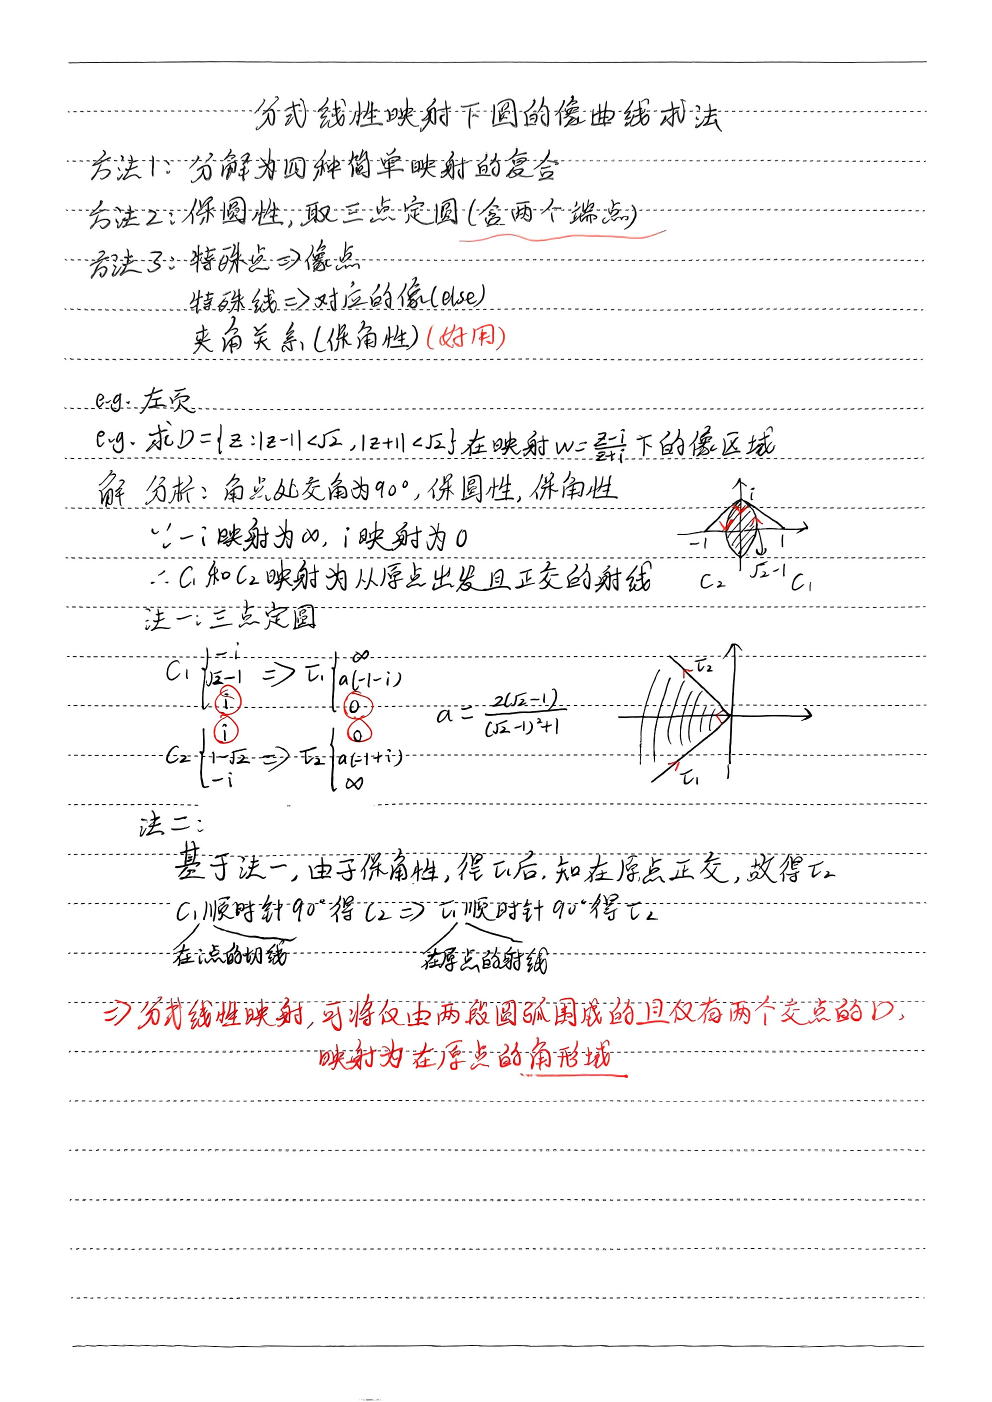 分式线性映射下圆的像曲线求法
方法1: 分解为四种简单映射的复合
方法2: 保圆性, 取三点定圆(含两个端点)
方法3: 特殊点⇒像点
特殊线⇒对应的像(else)
夹角关系(保角性)(好用)
e.g. 左页
e.g. 求D={z:|z-1|<√2, |z+1|<√2}在映射w=(z-i)/(z+i)下的像区域
解 分析: 角点处交角为90°, 保圆性, 保角性
∵ -i映射为∞, i映射为0
∴ C₁和C₂映射为从原点出发且正交的射线
i
-1
1
√2-1
C₂
C₁
法一: 三点定圆
C₁ { -i, √2-1, i ⇒ τ₁ { ∞, a(-1-i), 0
C₂ { i, 1-√2, -i ⇒ τ₂ { 0, a(-1+i), ∞
a = 2(√2-1)/((√2-1)²+1)
τ₂
τ₁
法二:
基于法一, 由于保角性, 得τ₁后, 知在原点正交, 故得τ₂
C₁顺时针90°得C₂ ⇒ τ₁顺时针90°得τ₂
在i点的切线
在原点的射线
⇒分式线性映射, 可将仅由两段圆弧围成的且仅有两个交点的D,
映射为在原点的角形域